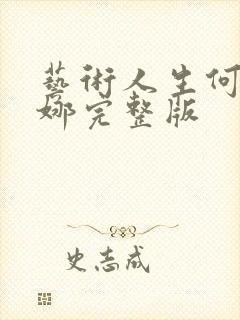 藝術人生何
娜完整版
史志成